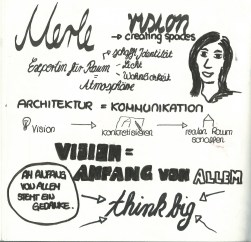 Merle vision
→ creating spaces
schafft Identität
Experten für Raum - Licht
- Wohnbarkeit
= Atmosphäre
ARCHITEKTUR = KOMMUNIKATION
Vision → konkretisieren → realen Raum
schaffen
VISION =
ANFANG VON ALLEM
AM ANFANG
VON ALLEM
STEHT EIN
GEDANKE.
think big